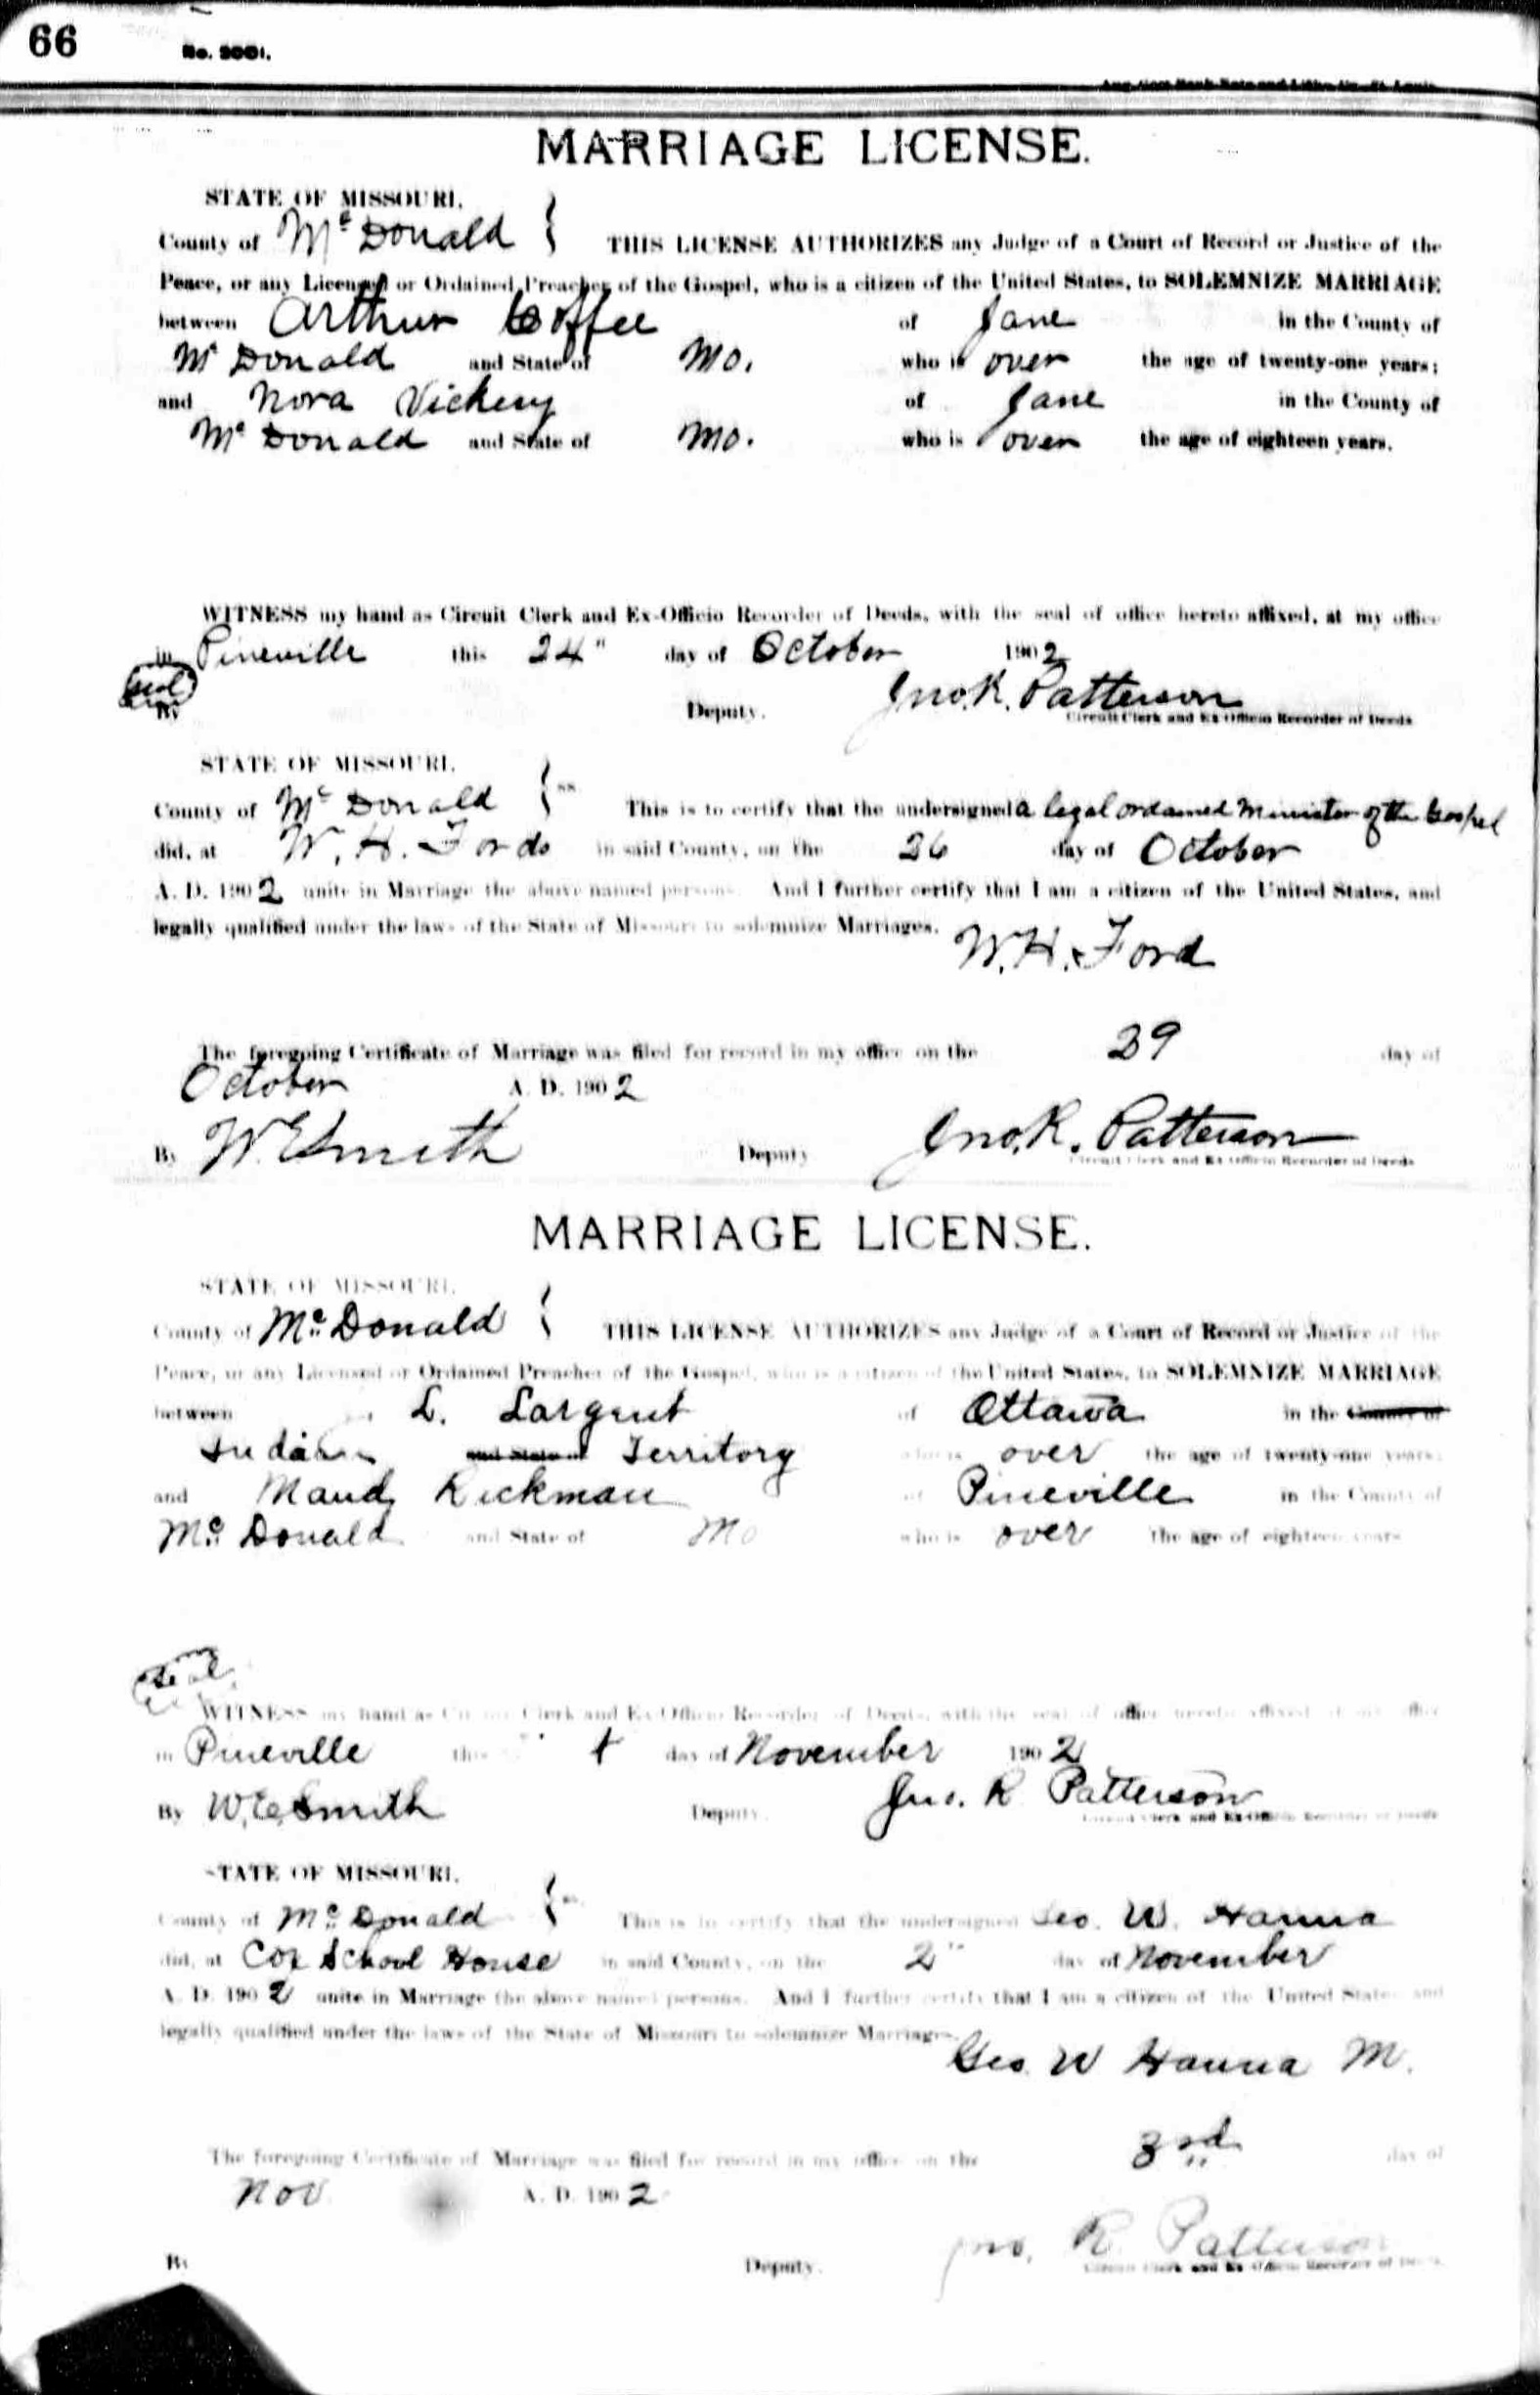 66
No. 2001.
MARRIAGE LICENSE.
STATE OF MISSOURI,
County of Mc Donald } THIS LICENSE AUTHORIZES any Judge of a Court of Record or Justice of the
Peace, or any Licensed or Ordained Preacher of the Gospel, who is a citizen of the United States, to SOLEMNIZE MARRIAGE
between Arthur Coffee of Jane in the County of
Mc Donald and State of Mo. who is over the age of twenty-one years;
and Nora Vickery of Jane in the County of
Mc Donald and State of Mo. who is over the age of eighteen years.
WITNESS my hand as Circuit Clerk and Ex-Officio Recorder of Deeds, with the seal of office hereto affixed, at my office
in Pineville this 24" day of October 1902
Seal
By Deputy. Jno. R. Patterson
Circuit Clerk and Ex-Officio Recorder of Deeds
STATE OF MISSOURI,
County of Mc Donald } ss This is to certify that the undersigned a legal ordained Minister of the Gospel
did, at W. H. Fords in said County, on the 26 day of October
A. D. 1902 unite in Marriage the above named persons. And I further certify that I am a citizen of the United States, and
legally qualified under the laws of the State of Missouri to solemnize Marriages.
W. H. Ford
The foregoing Certificate of Marriage was filed for record in my office on the 29 day of
October A. D. 1902
By W. E. Smith Deputy Jno. R. Patterson
Circuit Clerk and Ex-Officio Recorder of Deeds
MARRIAGE LICENSE.
STATE OF MISSOURI,
County of Mc Donald } THIS LICENSE AUTHORIZES any Judge of a Court of Record or Justice of the
Peace, or any Licensed or Ordained Preacher of the Gospel, who is a citizen of the United States, to SOLEMNIZE MARRIAGE
between L. Largent of Ottawa in the County of
Indian and State of Territory who is over the age of twenty-one years;
and Maud Rickman of Pineville in the County of
Mc Donald and State of Mo who is over the age of eighteen years
Seal
WITNESS my hand as Circuit Clerk and Ex-Officio Recorder of Deeds, with the seal of office hereto affixed, at my office
in Pineville this day of November 1902
By W. E. Smith Deputy. Jno. R Patterson
Circuit Clerk and Ex-Officio Recorder of Deeds
STATE OF MISSOURI,
County of Mc Donald } ss This is to certify that the undersigned Geo. W. Hanna
did, at Cox School House in said County, on the 2" day of November
A. D. 1902 unite in Marriage the above named persons. And I further certify that I am a citizen of the United States and
legally qualified under the laws of the State of Missouri to solemnize Marriages
Geo. W Hanna M.
The foregoing Certificate of Marriage was filed for record in my office on the 3rd day of
Nov A. D. 1902
By Deputy. Jno. R. Patterson
Circuit Clerk and Ex-Officio Recorder of Deeds